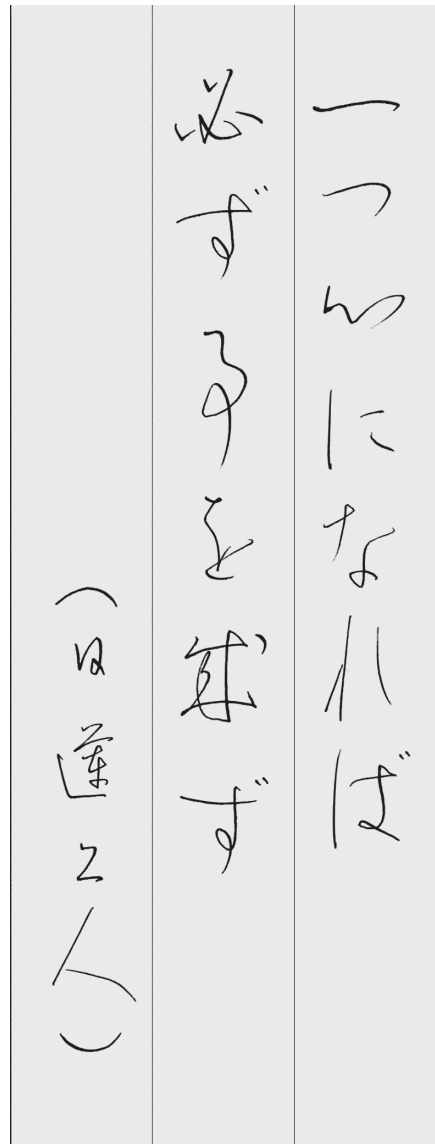 一つ心になれば
必ず事を成ず
(日蓮上人)